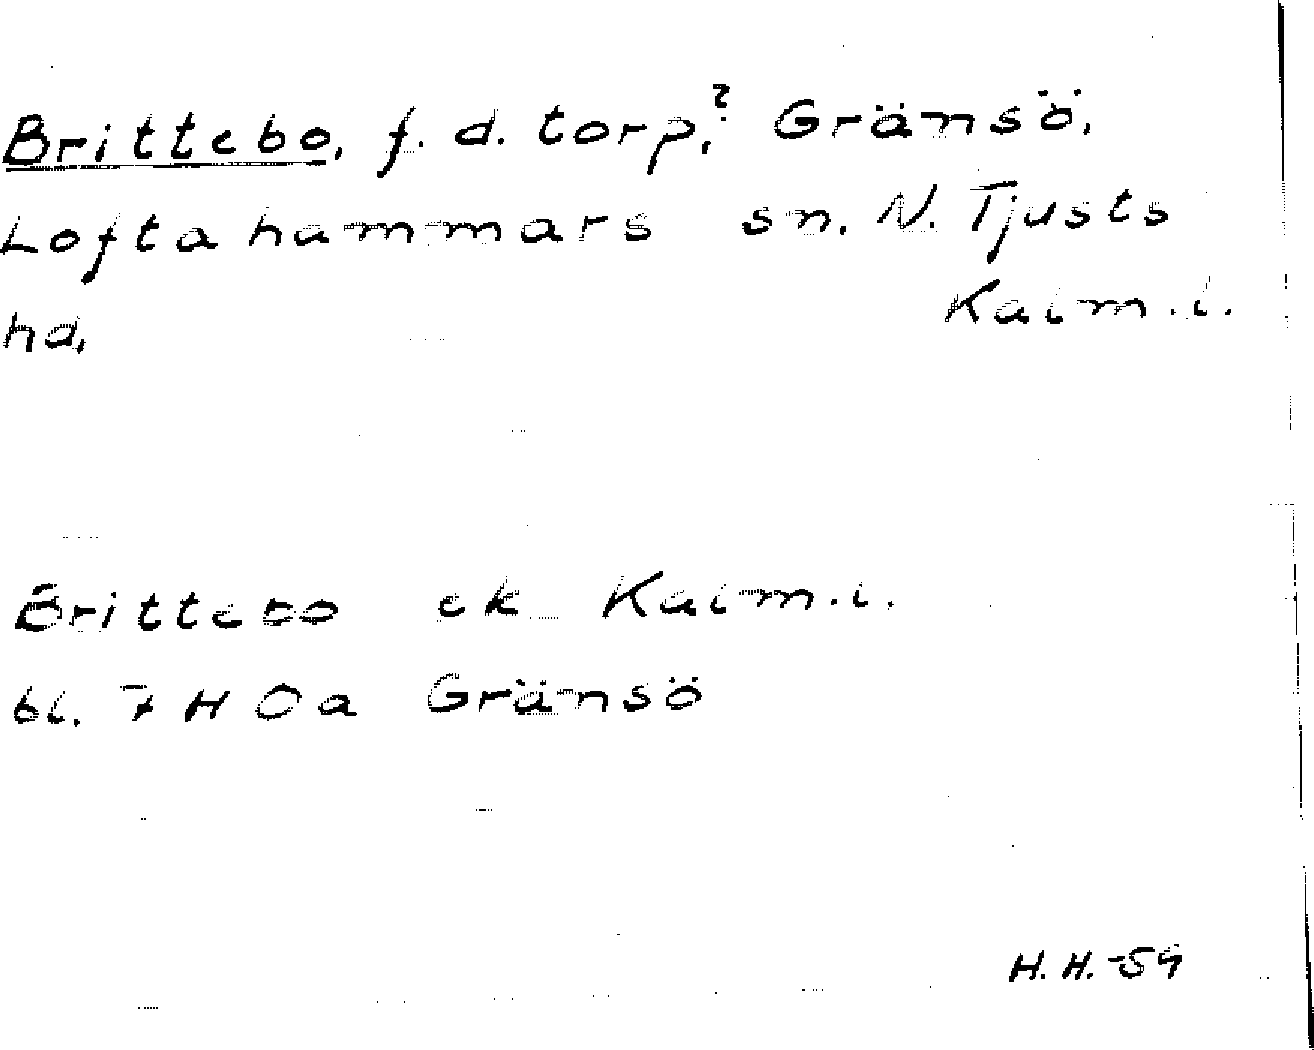 Brittebo, f. d. torp,? Gränsö,
Loftahammars sn. N. Tjusts
hd, Kalm.l.
Brittebo ek Kalm.l.
bl. 7 H 0a Gränsö
H. H. -59